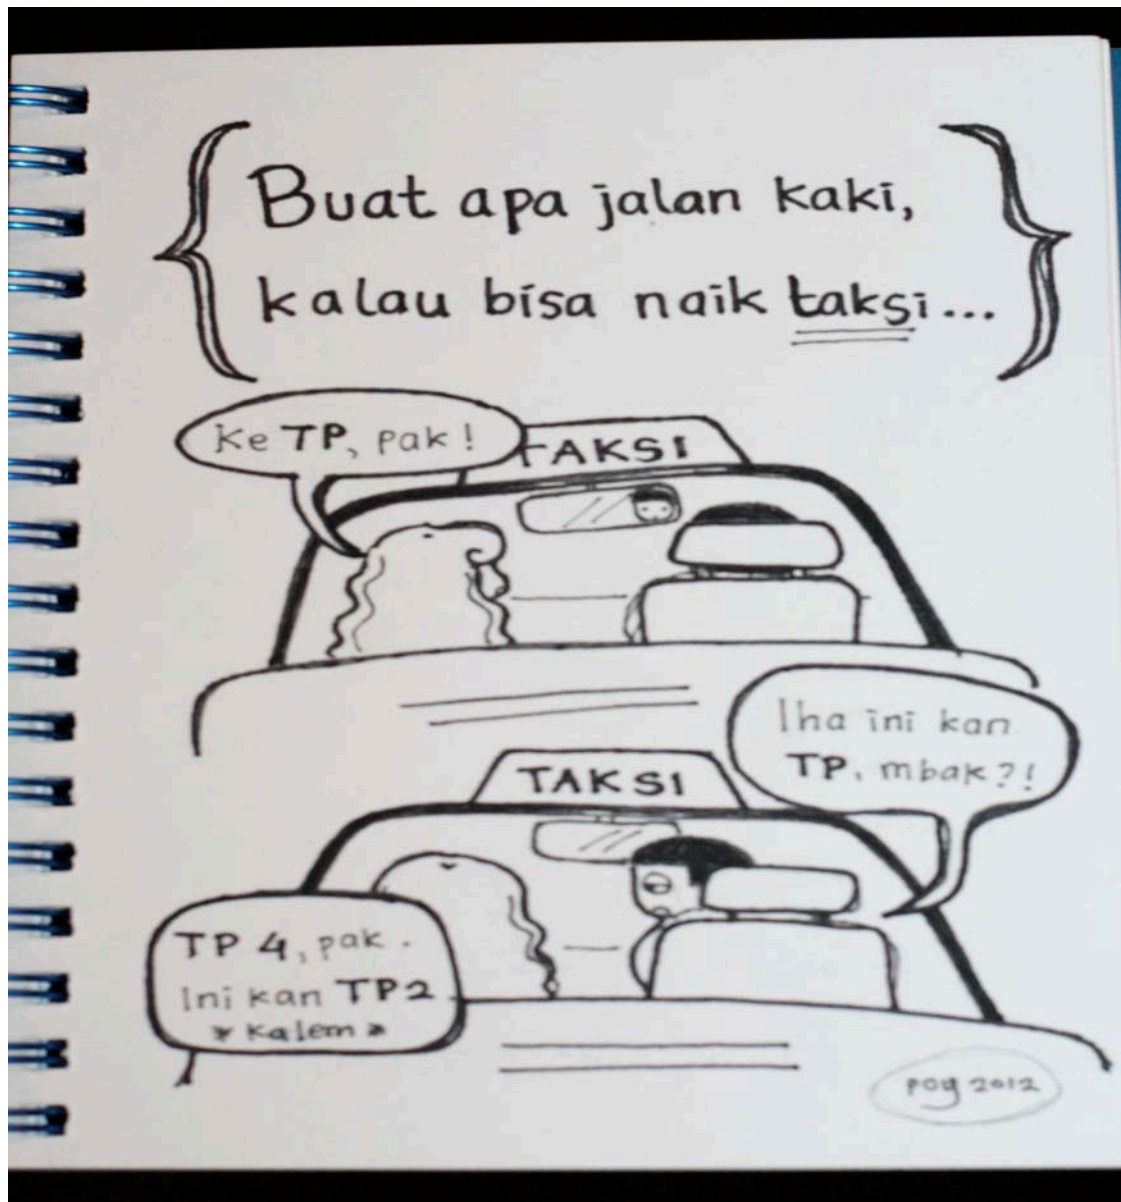 Buat apa jalan kaki,
kalau bisa naik taksi...
Ke TP, pak!
TAKSI
lha ini kan
TP, mbak?!
TAKSI
TP 4, pak.
Ini kan TP2
* Kalem *
poy 2012